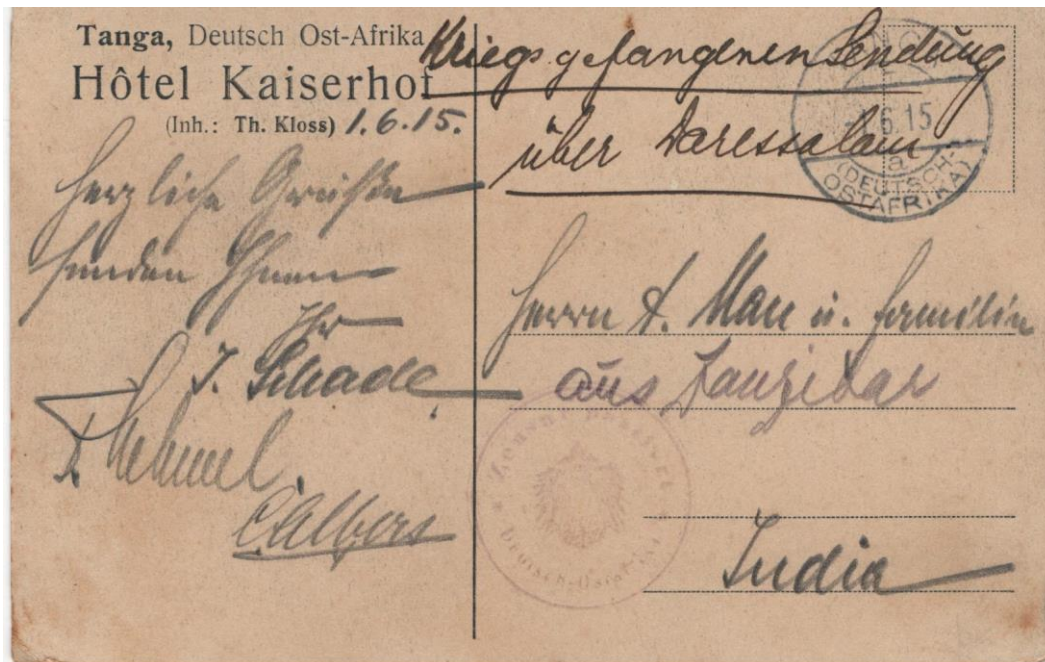 Tanga, Deutsch Ost-Afrika
Hôtel Kaiserhof
(Inh.: Th. Kloss) 1.6.15.
Herzliche Grüße
senden Ihnen
Ihr
J. Schade.
C. Albers
Kriegsgefangenen Sendung
über Daressalam
6.15
a
(DEUTSCH-
OSTAFRIKA)
Herrn A. Mau u. Familie
aus Zanzibar
India